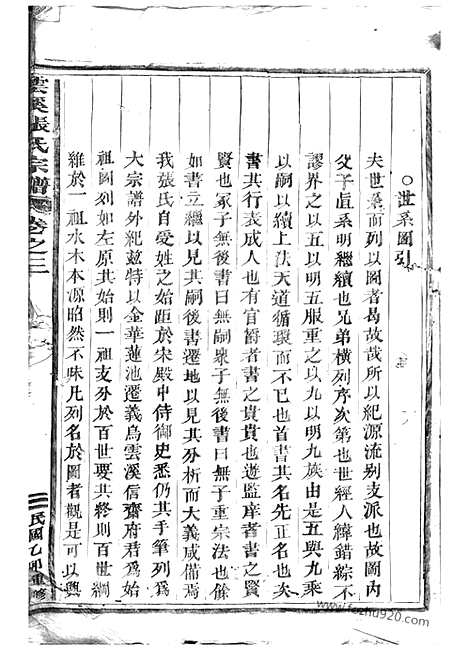 ○世系圖引
夫世系而列以圖者曷故哉所以紀源流别支派也故圖内
父子直系明繼續也兄弟橫列序次第也世經人緯錯綜不
謬界之以五以明五服重之以九以明九族由是五與九乘
以嗣以續上法天道循環而不已也首書其名先正名也次
書其行表成人也有官爵者書之貴貴也遊監庠者書之賢
賢也冢子無後書曰無嗣衆子無後書曰無子重宗法也餘
如書立繼以見其嗣後書遷地以見其分析而大義咸備焉
我張氏自受姓之始距於宋殿中侍御史悉仍其手筆列爲
大宗譜外紀兹特以金華蓮池遷義烏雲溪信齋府君爲始
祖圖列如左原其始則一祖支分於百世要其終則百世綱
維於一祖水木本源昭然不昧凡列名於圖者觀是可以興
雲溪張氏宗譜
卷之三
民國乙卯重修
www.fozhu920.com